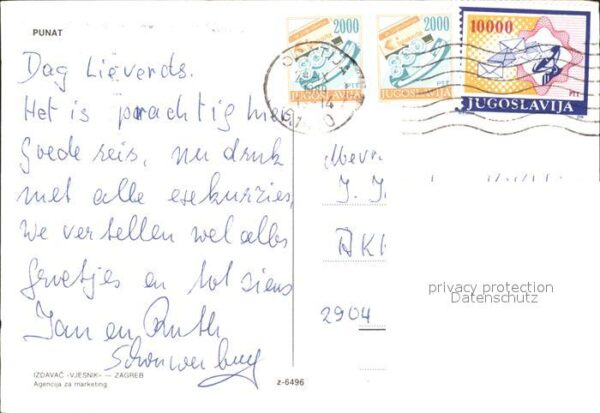 PUNAT
2000
2000
10000
PTT JUGOSLAVIJA
PTT JUGOSLAVIJA
PTT
JUGOSLAVIJA
Dag Lieverds.
Het is prachtig hier
Goede reis, nu druk
met alle exkurzies,
We vertellen wel alles
Groetjes en tot ziens
Jan en Ruth
Mevr.
J. J.
2904
privacy protection
Datenschutz
IZDAVAČ »VJESNIK« — ZAGREB
Agencija za marketing
z-6496